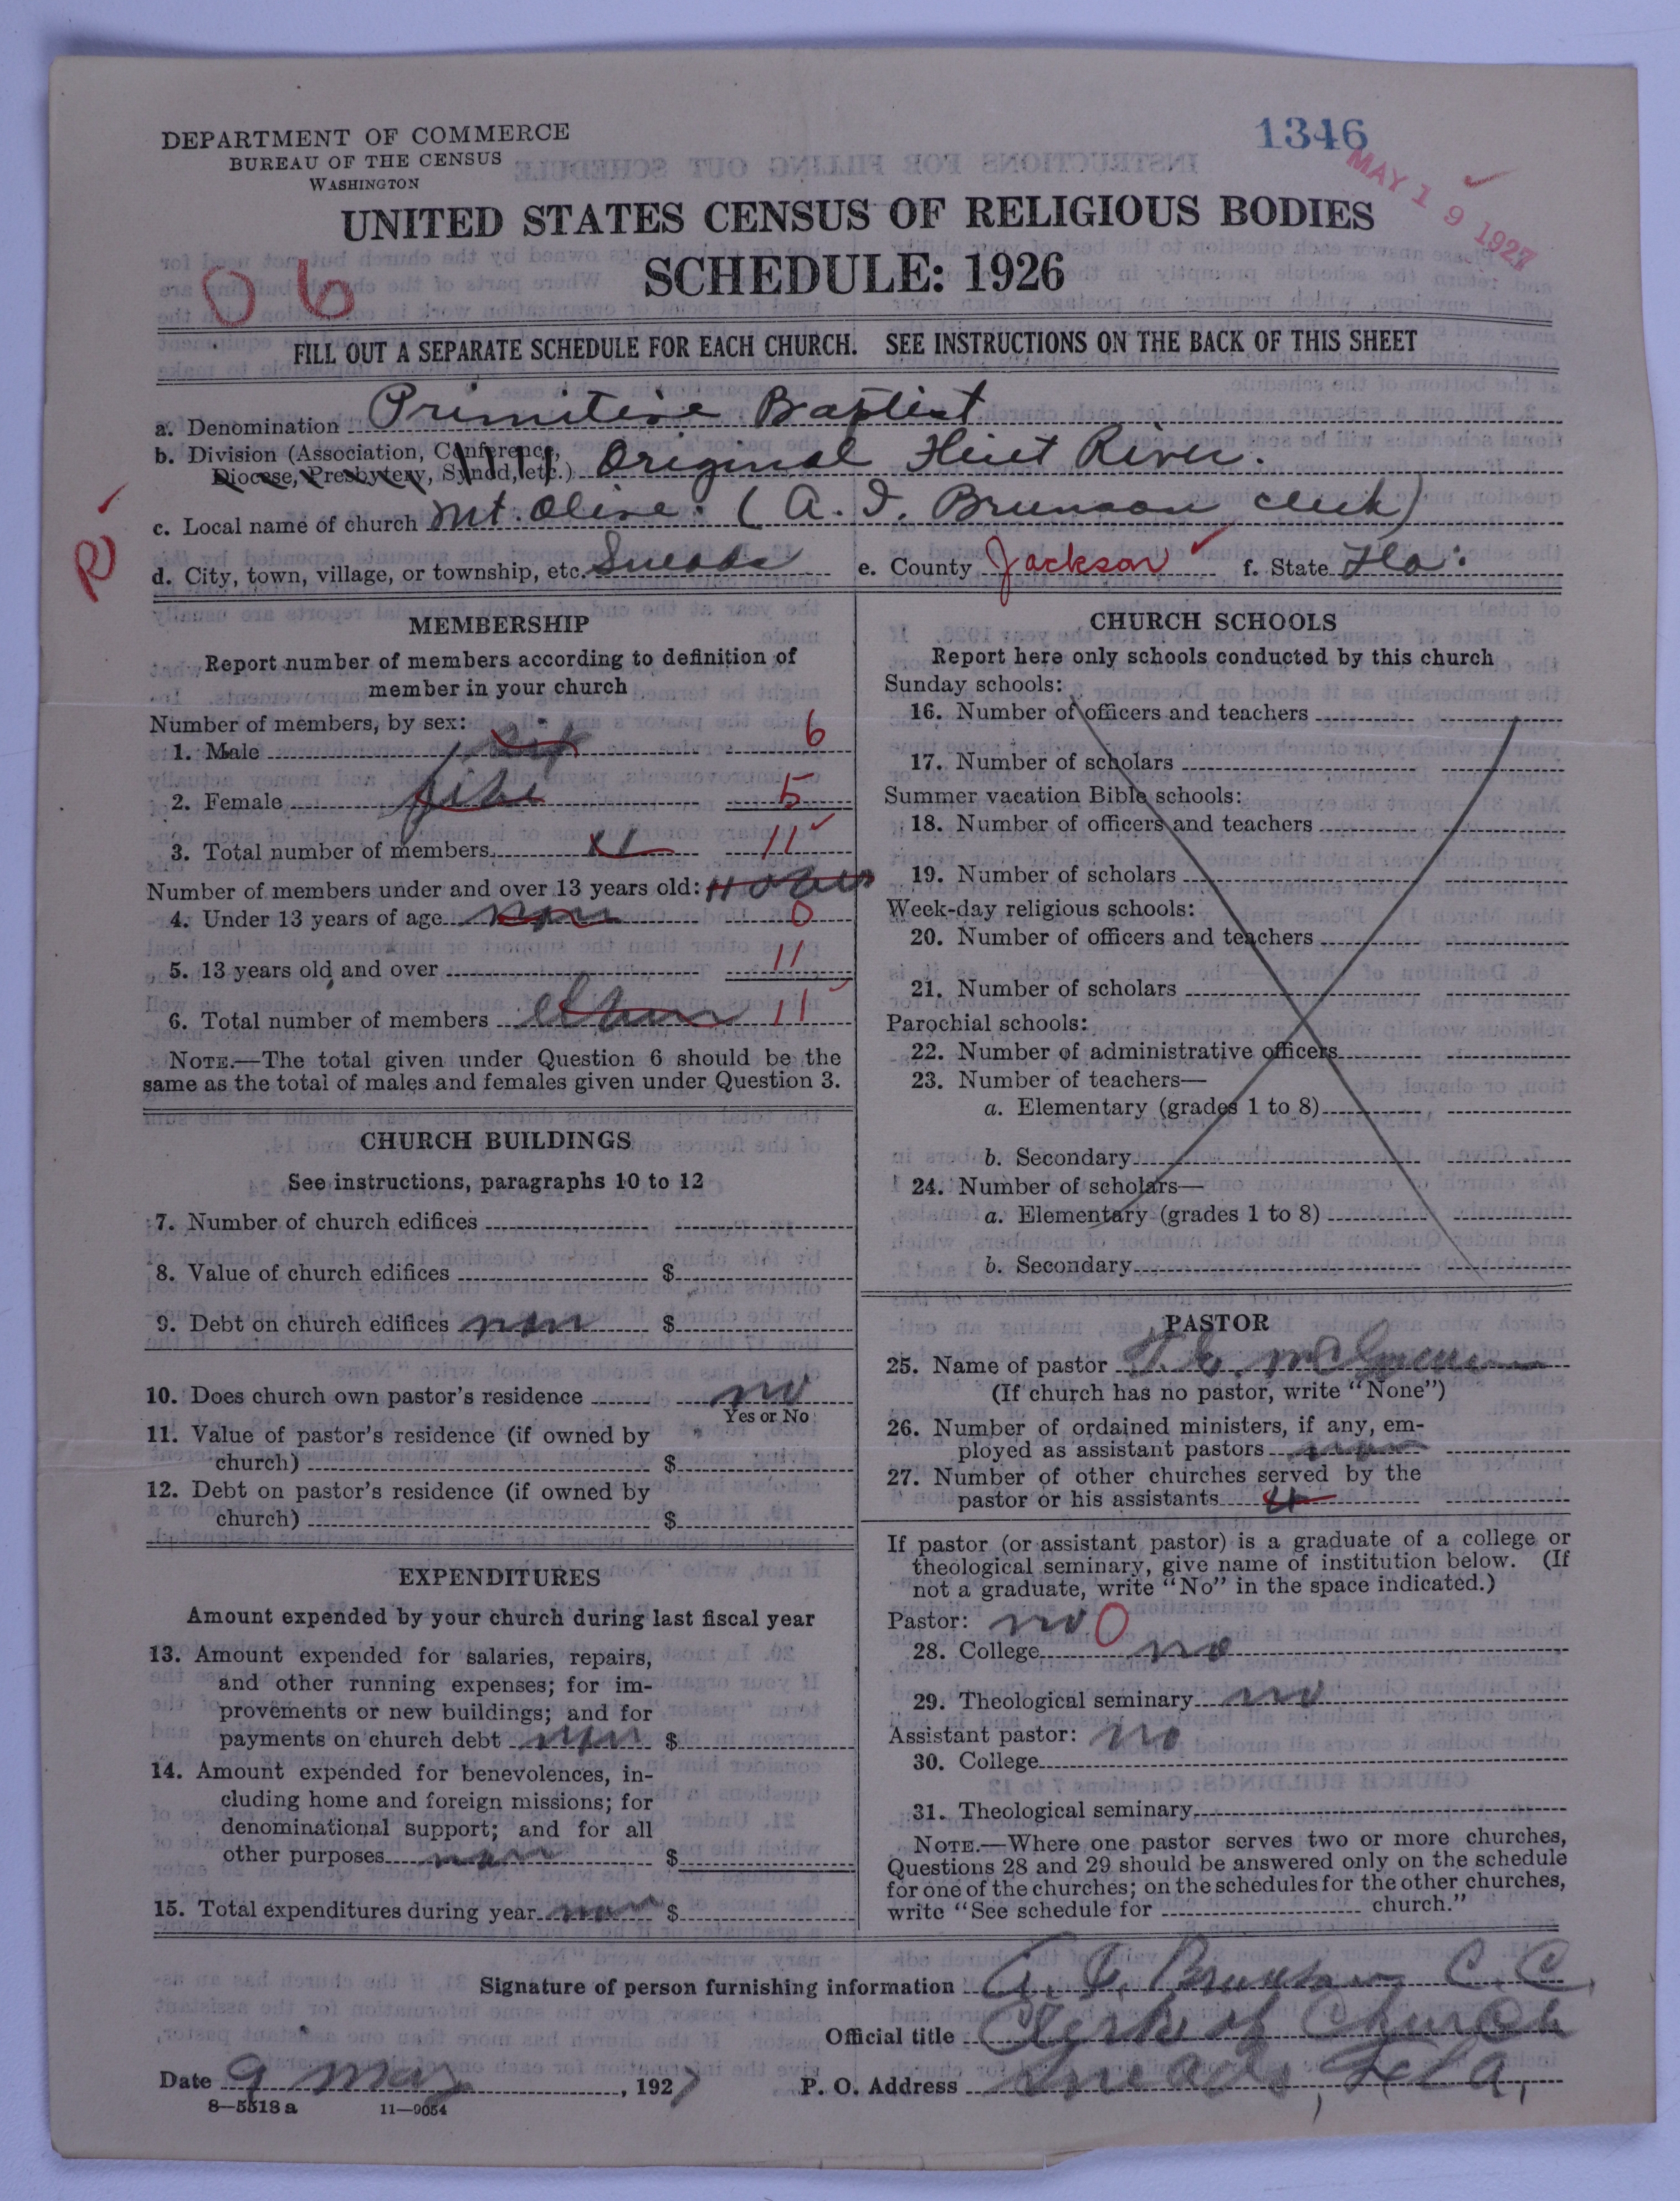 DEPARTMENT OF COMMERCE
BUREAU OF THE CENSUS
WASHINGTON
1346
MAY 19 1927
UNITED STATES CENSUS OF RELIGIOUS BODIES
SCHEDULE: 1926
06
FILL OUT A SEPARATE SCHEDULE FOR EACH CHURCH. SEE INSTRUCTIONS ON THE BACK OF THIS SHEET
a. Denomination Primitive Baptist
b. Division (Association, Conference,
Diocese, Presbytery, Synod, etc.) Original Flint River.
c. Local name of church Mt. Olive. (A. I. Brunson clerk)
R
d. City, town, village, or township, etc. Sneads e. County Jackson f. State Fla.
MEMBERSHIP
Report number of members according to definition of
member in your church
Number of members, by sex:
1. Male six 6
2. Female five 5
3. Total number of members 11 11
Number of members under and over 13 years old:
4. Under 13 years of age non 0
5. 13 years old and over 11
6. Total number of members 11
NOTE.—The total given under Question 6 should be the
same as the total of males and females given under Question 3.
CHURCH BUILDINGS
See instructions, paragraphs 10 to 12
7. Number of church edifices
8. Value of church edifices $
9. Debt on church edifices non $
10. Does church own pastor's residence no
Yes or No
11. Value of pastor's residence (if owned by
church) $
12. Debt on pastor's residence (if owned by
church) $
EXPENDITURES
Amount expended by your church during last fiscal year
13. Amount expended for salaries, repairs,
and other running expenses; for im-
provements or new buildings; and for
payments on church debt non $
14. Amount expended for benevolences, in-
cluding home and foreign missions; for
denominational support; and for all
other purposes non $
15. Total expenditures during year non $
CHURCH SCHOOLS
Report here only schools conducted by this church
Sunday schools:
16. Number of officers and teachers
17. Number of scholars
Summer vacation Bible schools:
18. Number of officers and teachers
19. Number of scholars
Week-day religious schools:
20. Number of officers and teachers
21. Number of scholars
Parochial schools:
22. Number of administrative officers
23. Number of teachers—
a. Elementary (grades 1 to 8)
b. Secondary
24. Number of scholars—
a. Elementary (grades 1 to 8)
b. Secondary
PASTOR
25. Name of pastor
(If church has no pastor, write "None")
26. Number of ordained ministers, if any, em-
ployed as assistant pastors non
27. Number of other churches served by the
pastor or his assistants 4
If pastor (or assistant pastor) is a graduate of a college or
theological seminary, give name of institution below. (If
not a graduate, write "No" in the space indicated.)
Pastor: no 0
28. College no
29. Theological seminary no
Assistant pastor: no
30. College
31. Theological seminary
NOTE.—Where one pastor serves two or more churches,
Questions 28 and 29 should be answered only on the schedule
for one of the churches; on the schedules for the other churches,
write "See schedule for church."
Signature of person furnishing information A. I. Brunson C. C.
Official title Clerk of Church
Date 9 May, 1927 P. O. Address Sneads, Fla,
8—5518 a 11—9054